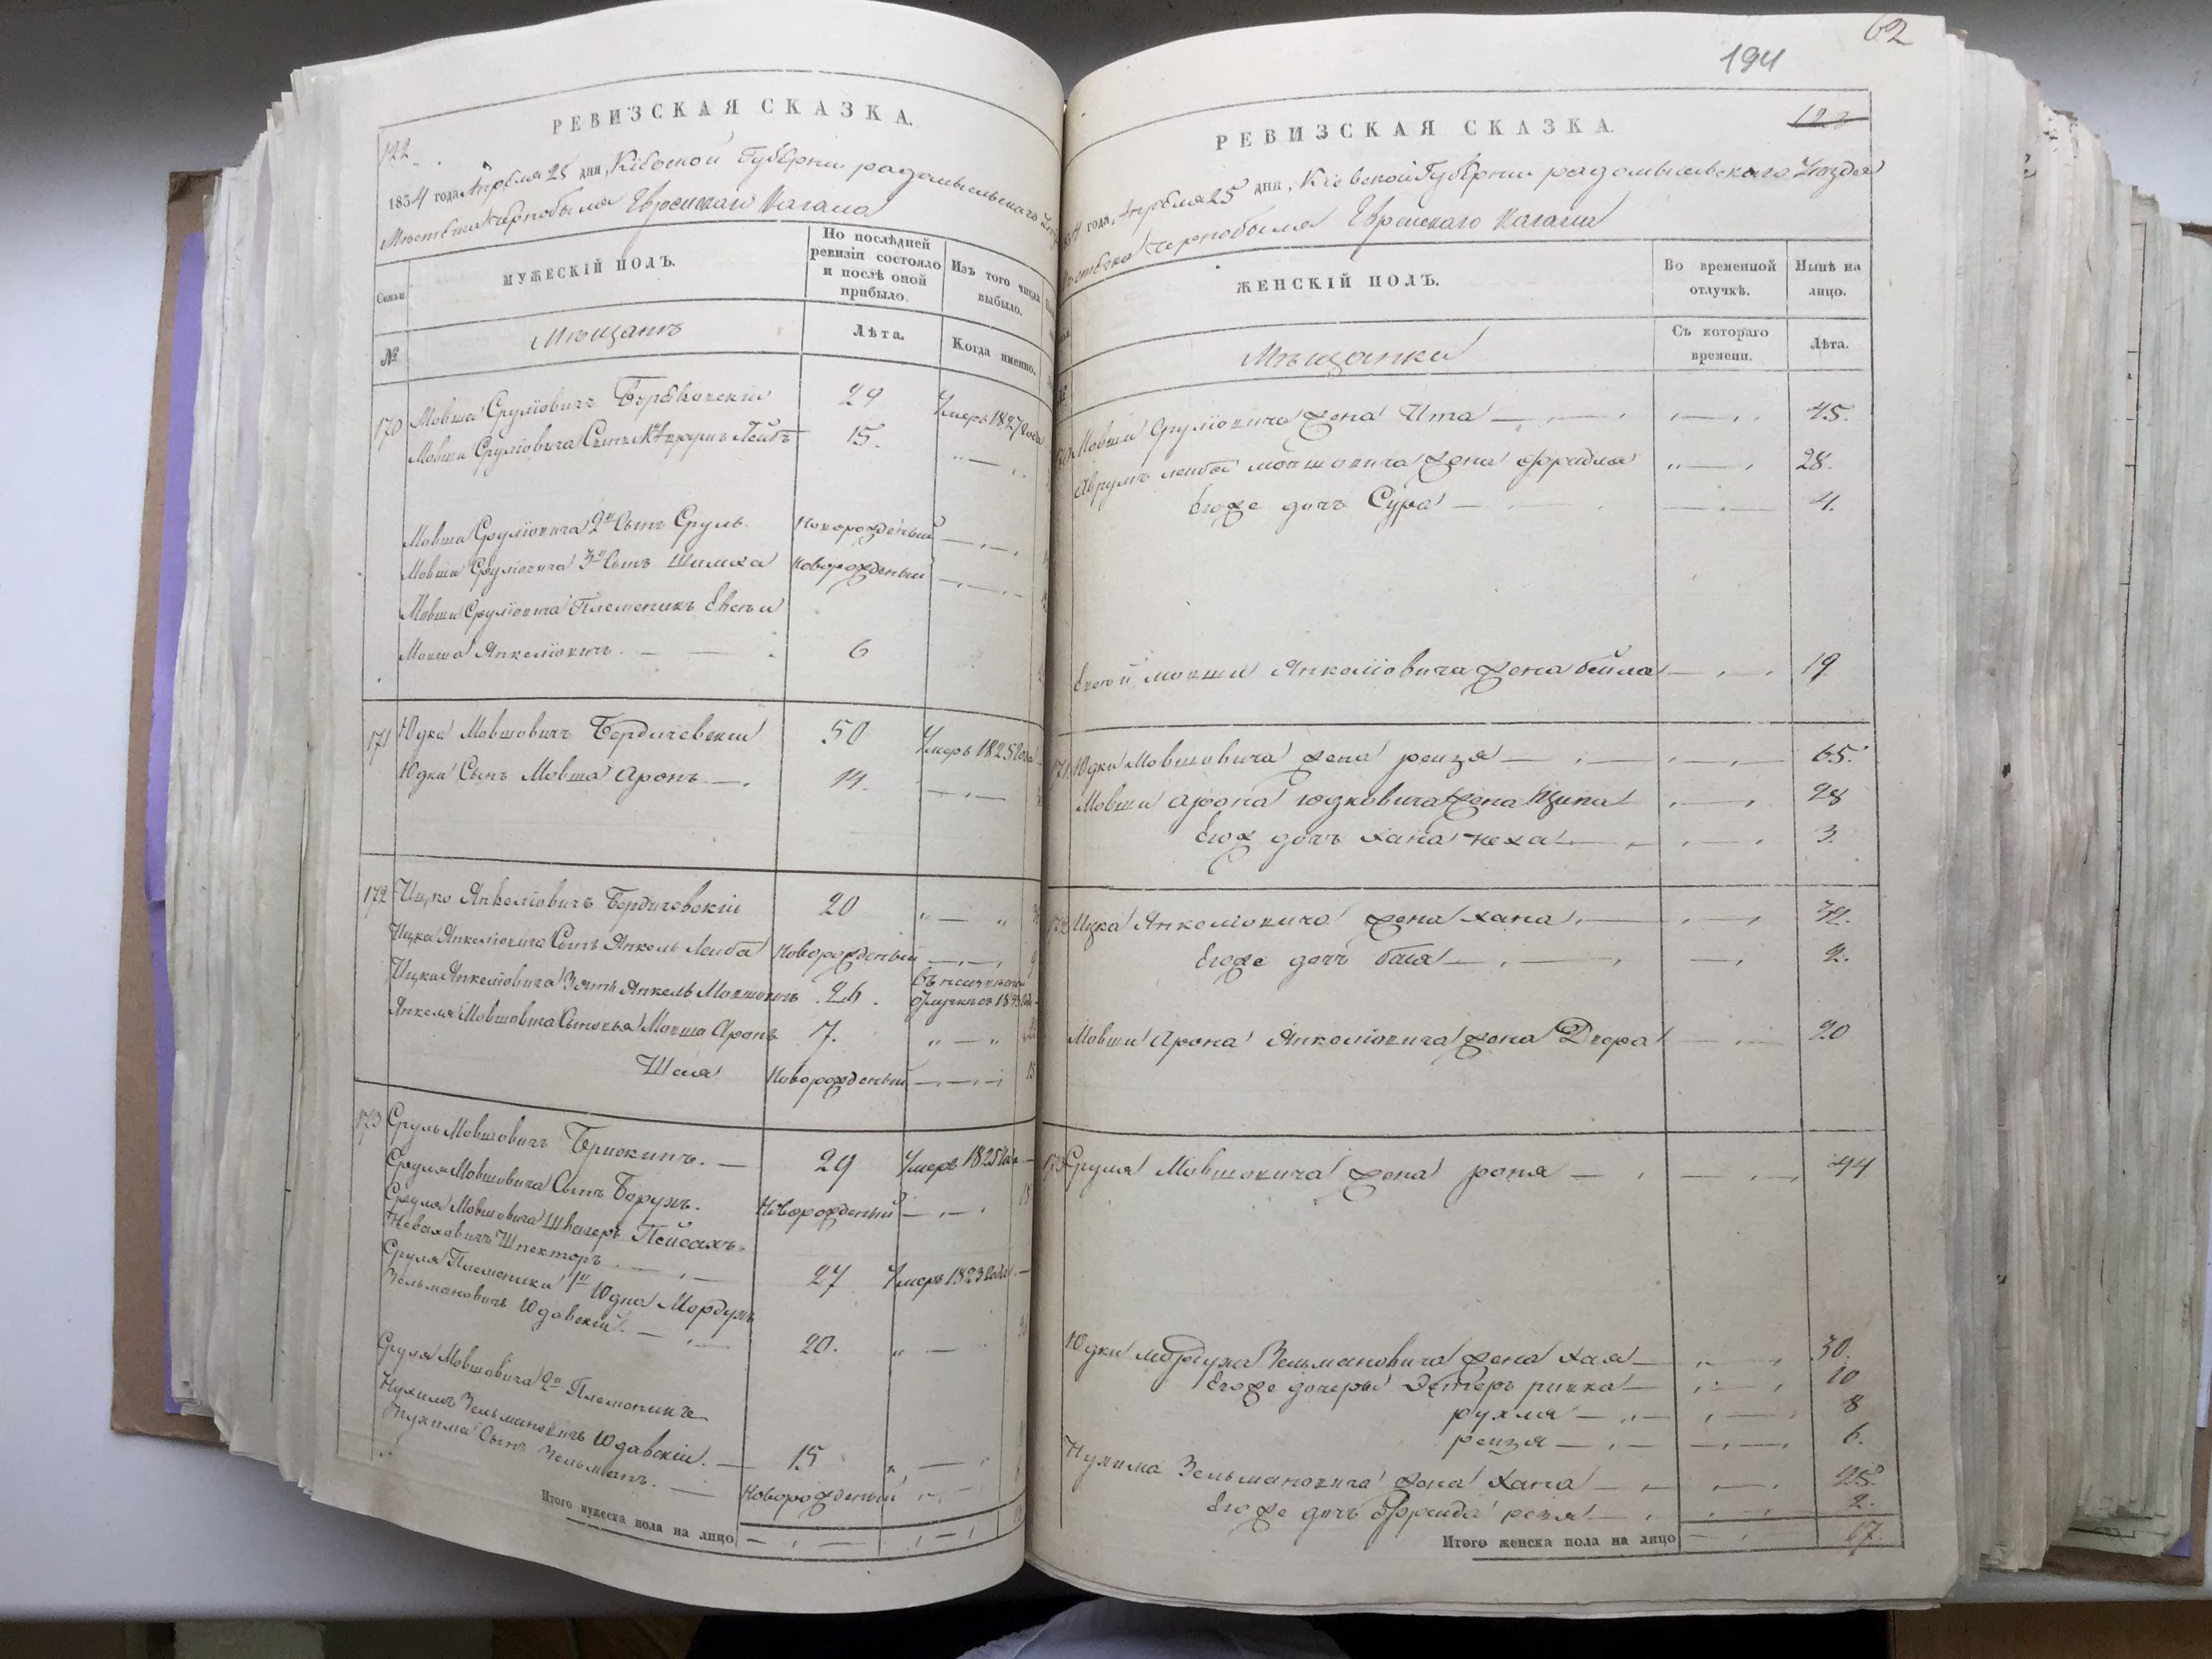 122
РЕВИЗСКАЯ СКАЗКА.
1834 года Апреля 25 дня, Кіевской Губерніи радомысльского
Местечка Чернобыля Еврейскаго Кагала
Семьи
МУЖЕСКІЙ ПОЛЪ.
По послѣдней ревизіи состояло и послѣ оной прибыло.
Изъ того числа выбыло.
№
Мѣщанъ
Лѣта.
Когда именно.
170 Мовша Срулiовичъ 29 Умеръ 1827 года
Мовши Срулiовича Сынъ Аврумъ Лейбъ 15.
Мовши Срулiовича 2й Сынъ Сруль Новорожденый
Мовши Срулiовича 3й Сынъ Шимха Новорожденый
Мовши Срулiовича Племеникъ Евсѣи
Мовша Янкелiовичъ. 6
171 Юдка Мовшовичъ Бердичевскiи 50 Умеръ 1825 года
Юдки Сынъ Мовша Аронъ 14.
172 Ицко Янкелiовичъ Бердичевскiи 20
Ицка Янкелiовича Сынъ Янкель Лейба Новорожденый
Ицка Янкелiовича Зять Янкель Мовшовичъ 26.
Янкеля Мовшовича Сыновья Мовша Аронъ 7.
Шая Новорожденый
173 Сруль Мовшовичъ 29 Умеръ 1825 года
Сруля Мовшовича Сынъ Борухъ. Новорожденый
Сруля Мовшовича Швагеръ Пейсахъ
Шпекторъ 27 Умеръ 1823 года
Сруля Племеники 1й Юдка Мордухъ
Зельмановичъ Юдавскiй. 20.
Сруля Мовшовича 2й Племеникъ
Нухимъ Зельмановичъ Юдавскiи. 15
Нухима Сынъ Зельманъ. Новорожденый
Итого мужеска пола на лицо
62
194
123
РЕВИЗСКАЯ СКАЗКА.
года, Апреля 25 дня, Кіевской Губерніи радомысльскаго Уезда
Местечка Чернобыля Еврейскаго Кагала
ЖЕНСКІЙ ПОЛЪ.
Во временной отлучкѣ.
Нынѣ на лицо.
Мѣщанки
Съ котораго времени.
Лѣта.
Мовши Срулiовича жена Ита 45.
Аврумъ лейба мовшовича жена Фрадля 28.
Егоже дочъ Сура 4.
Евсѣй мовши Янкелiовича жена бейла 19
171 Юдки Мовшовича жена рейзя 65.
Мовши арона юдковича жена Ципа 28
Егож дочъ хана неха 3.
172 Ицка Янкелiовича жена хана
Егоже дочъ бася 2.
Мовши Арона Янкелiовича жена Двора 20
173 Сруля Мовшовича жена роня 44
Юдки мордуха Зельмановича жена хая 30.
Егоже дочеры Эстеръ ривка 10
рухля 8
рейзя 6.
Нухима Зельмановича жена хана 25.
Егоже дочъ 2.
Итого женска пола на лицо 17.